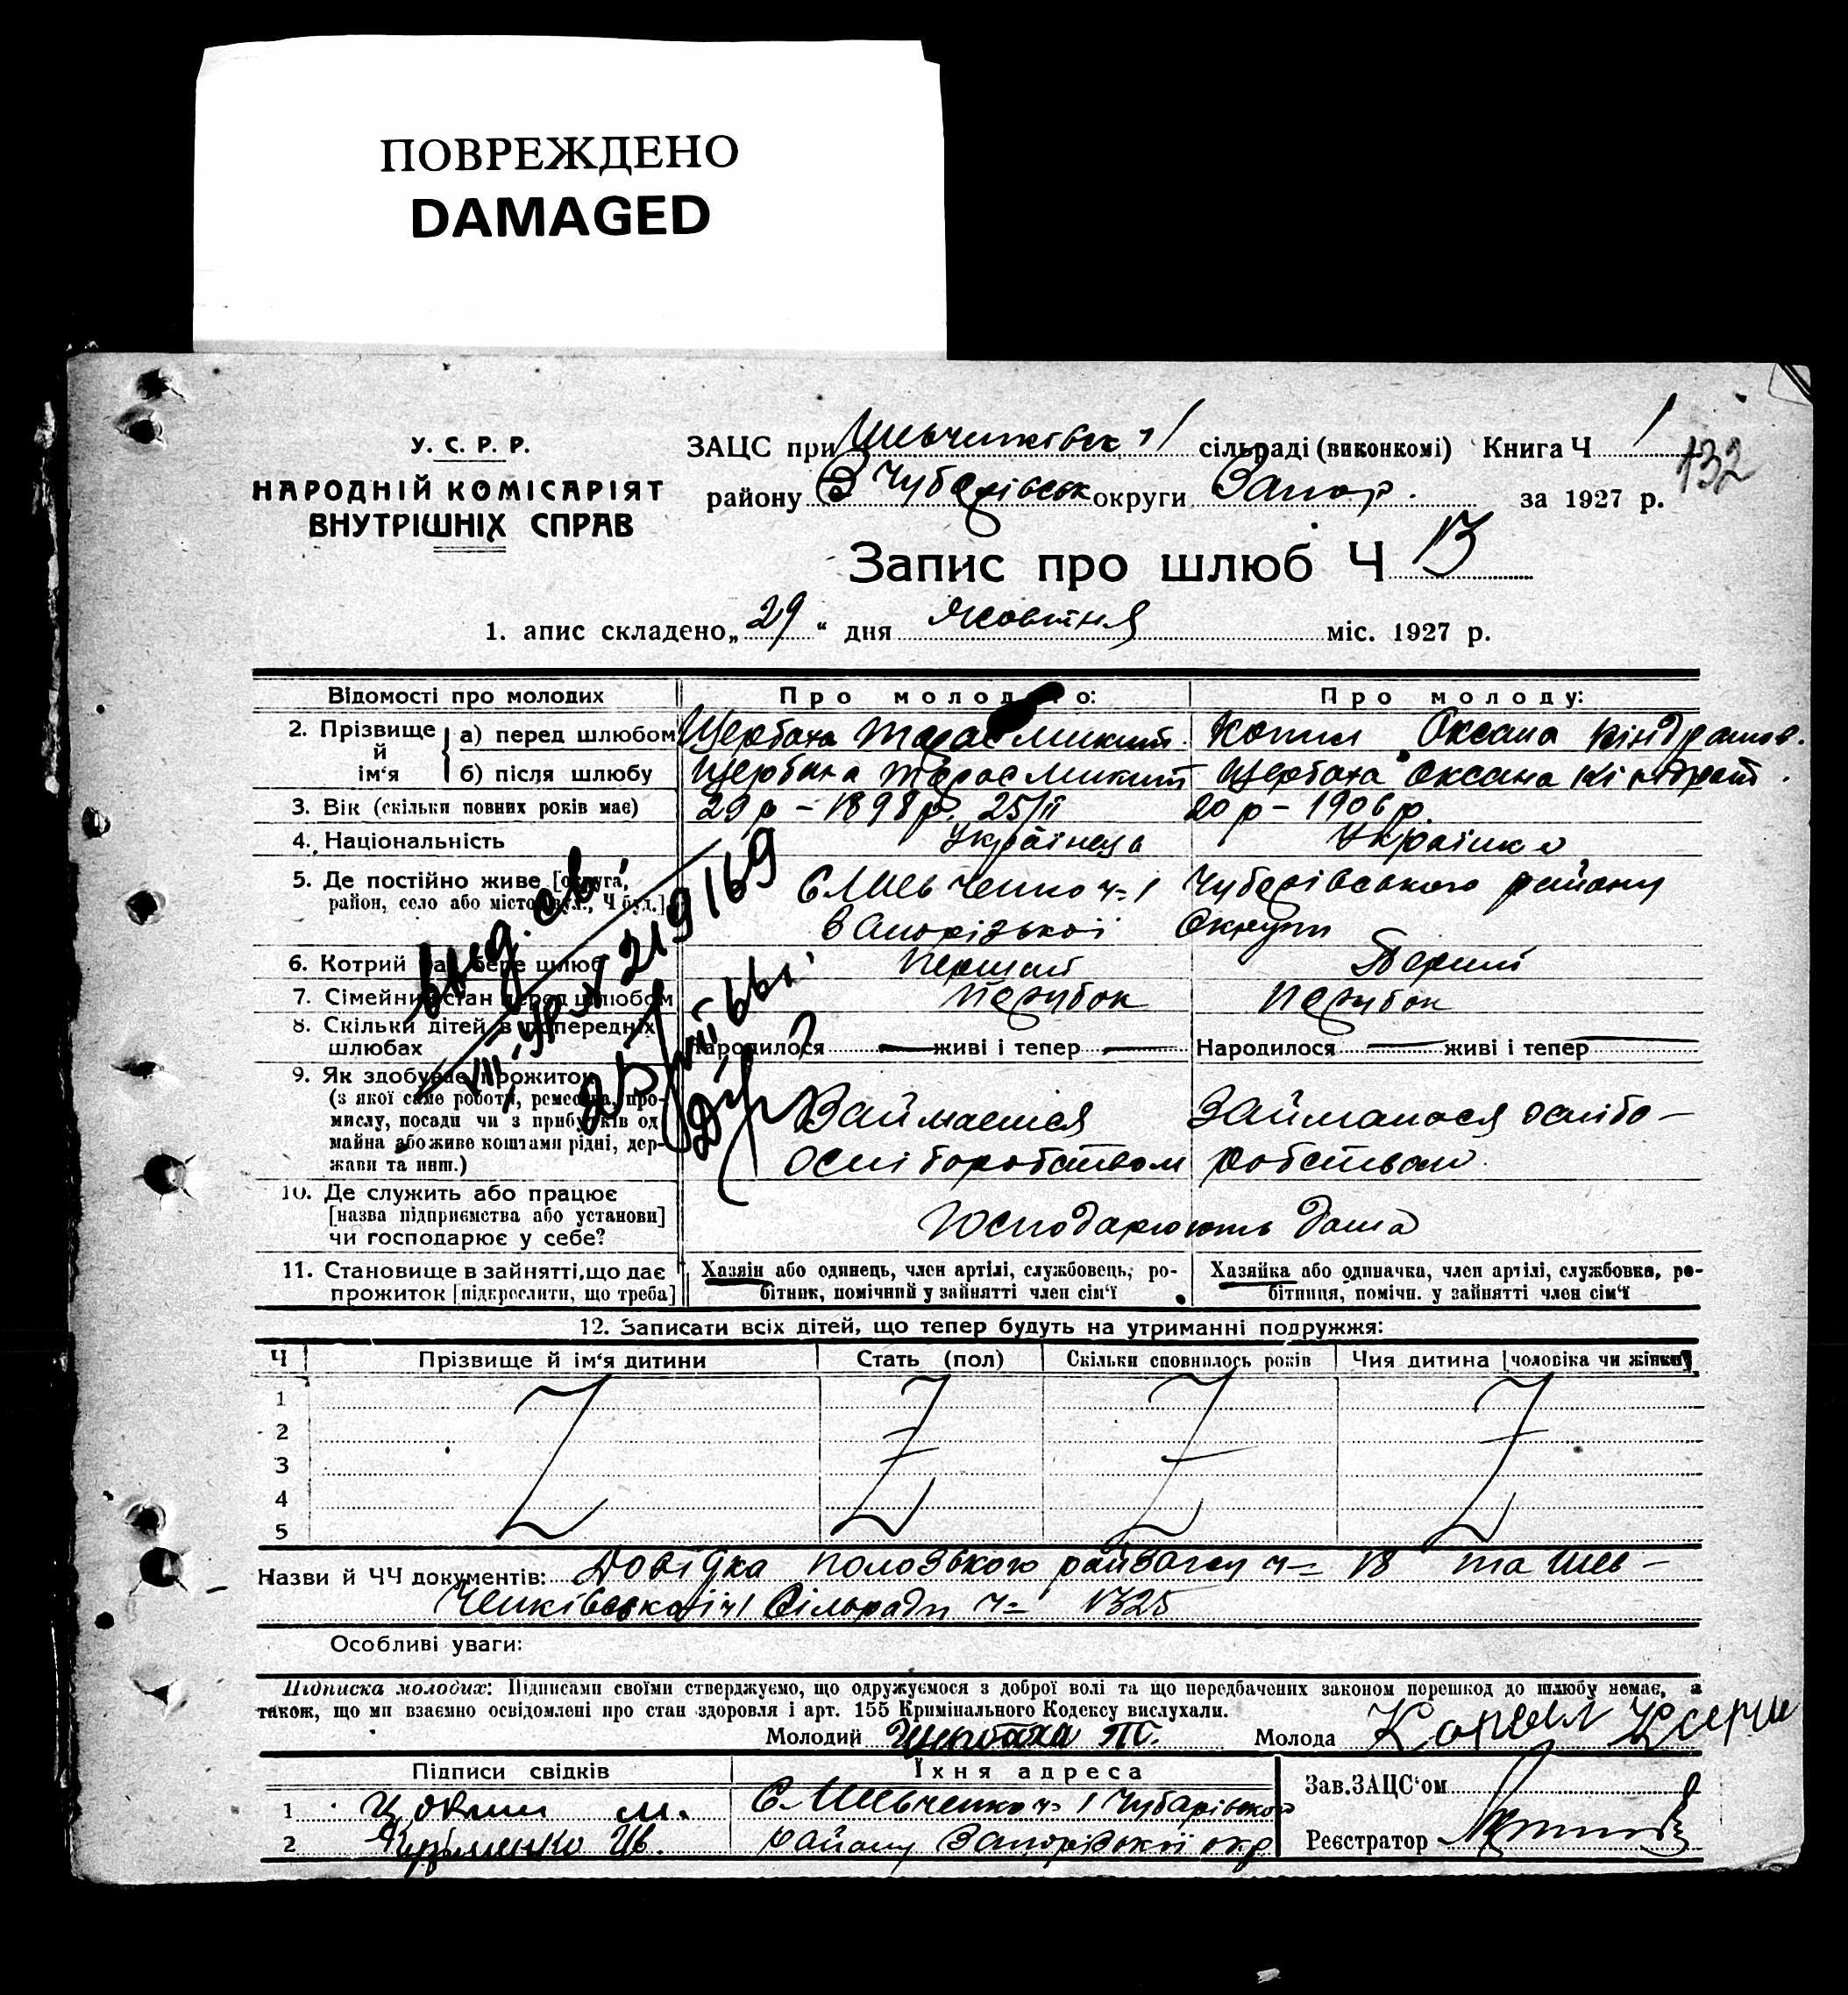 ПОВРЕЖДЕНО
DAMAGED
У. С. Р. Р.
НАРОДНІЙ КОМІСАРІЯТ
ВНУТРІШНІХ СПРАВ
ЗАЦС при Шевченківськ 1 сільраді (виконкомі) Книга Ч 1
132
району Чубарівськ округи Запор. за 1927 р.
Запис про шлюб Ч 13
1. апис складено „29“ дня Жовтня міс. 1927 р.
Відомості про молодих Про молодого: Про молоду:
2. Прізвище й ім‘я а) перед шлюбом Щербаха Тарас Микит. Копил Оксана Кіндратов.
б) після шлюбу Щербаха Тарас Микит Щербаха Оксана Кіндрат.
3. Вік (скільки повних років має) 29 р – 1898 р. 25/II 20 р – 1906 р.
4. Національність Українець Українка
5. Де постійно живе [округа, С Шевченко ч=1 Чубарівського району
район, село або місто, вул., Ч буд.] Запорізької Округи
6. Котрий раз бере шлюб Перший Перший
7. Сімейний стан перед шлюбом Парубок Парубок
8. Скільки дітей в попередніх
шлюбах Народилося — живі і тепер — Народилося — живі і тепер —
9. Як здобуває прожиток
(з якої саме роботи, ремесла, про- Займається Займалася хлібо–
мислу, посади чи з прибутків од
майна або живе коштами рідні, дер- робством
жави та инш.)
10. Де служить або працює
[назва підприємства або установи] Господарюють дома
чи господарює у себе?
11. Становище в зайнятті, що дає Хазяін або одинець, член артілі, службовець, ро- Хазяйка або одиначка, член артілі, службовка, ро-
прожиток [підкреслити, що треба] бітник, помічний у зайнятті член сім‘ї бітниця, помічн. у зайнятті член сім‘ї
12. Записати всіх дітей, що тепер будуть на утриманні подружжя:
Ч Прізвище й ім‘я дитини Стать (пол) Скільки сповнилось років Чия дитина [чоловіка чи жінки]
1
2
3
4
5
Назви й ЧЧ документів: Довідка Пологського райзагсу ч= 18 та Шев–
ченківської ч1 Сільради ч= 1325
Особливі уваги:
Підписка молодих: Підписами своїми стверджуємо, що одружуємося з доброї волі та що передбачених законом перешкод до шлюбу немає, а
також, що ми взаємно освідомлені про стан здоровля і арт. 155 Кримінального Кодексу вислухали.
Молодий Щербаха Т. Молода Копил
Підписи свідків Їхня адреса
Зав. ЗАЦС‘ом
1 М. С. Шевченко ч= 1 Чубарівської
2 Кузьменко Ів. району Запорізької окр Реєстратор